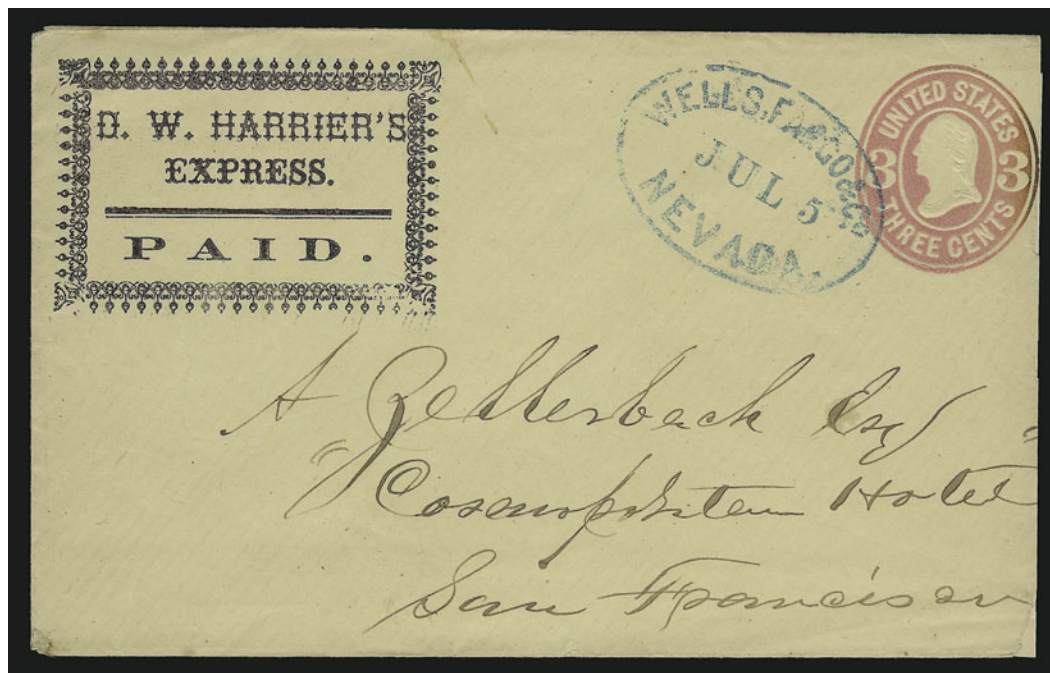 D. W. HARRIER'S
EXPRESS.
PAID.
WELLS, FARGO & CO.
JUL 5
NEVADA.
UNITED STATES
3 3
THREE CENTS
A Zellerbach Esq
Cosmopolitan Hotel
San Francisco